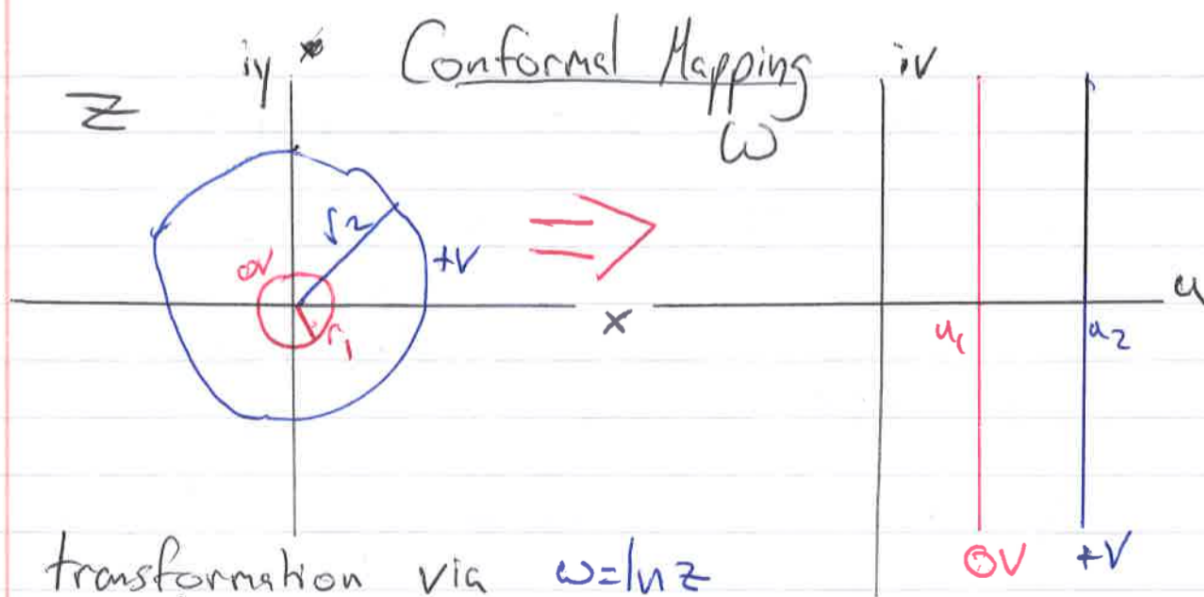 Conformal Mapping
iy
iv
Z
ω
r2
0V
+V
r1
x
u
u1
u2
0V
+V
transformation via ω=ln z